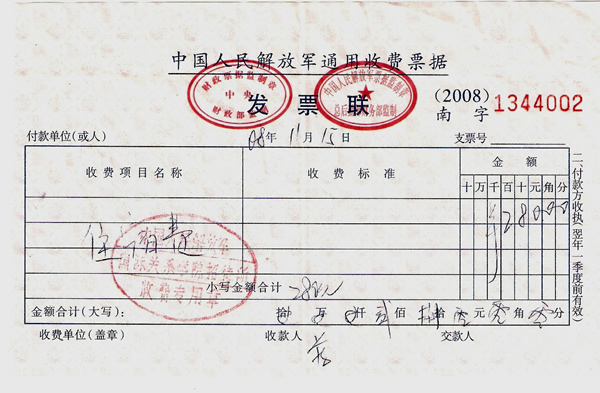 中国人民解放军通用收费票据
财政票据监制章
中央
财政部监制
中国人民解放军票据监制章
总后勤部财务部监制
发票联
(2008)
南字 1344002
付款单位(或人)
08年11月15日
支票号
收费项目名称 收费标准 金额
十万千百十元角分
住宿费
28000
国际关系学院招待所
收费专用章
小写金额合计 280元
金额合计(大写): 拾 万 仟 贰佰 捌拾零元零角零分
收费单位(盖章) 收款人 交款人
二、付款方收执(翌年一季度前有效)